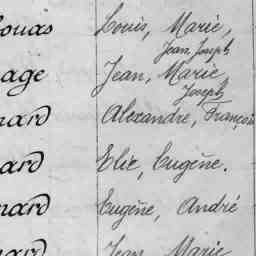 ouas Louis, Marie,
Jean, Joseph
age Jean, Marie
Joseph
nard Alexandre, François
ard Elie, Eugène.
nard Eugène, André
nard Jean Marie